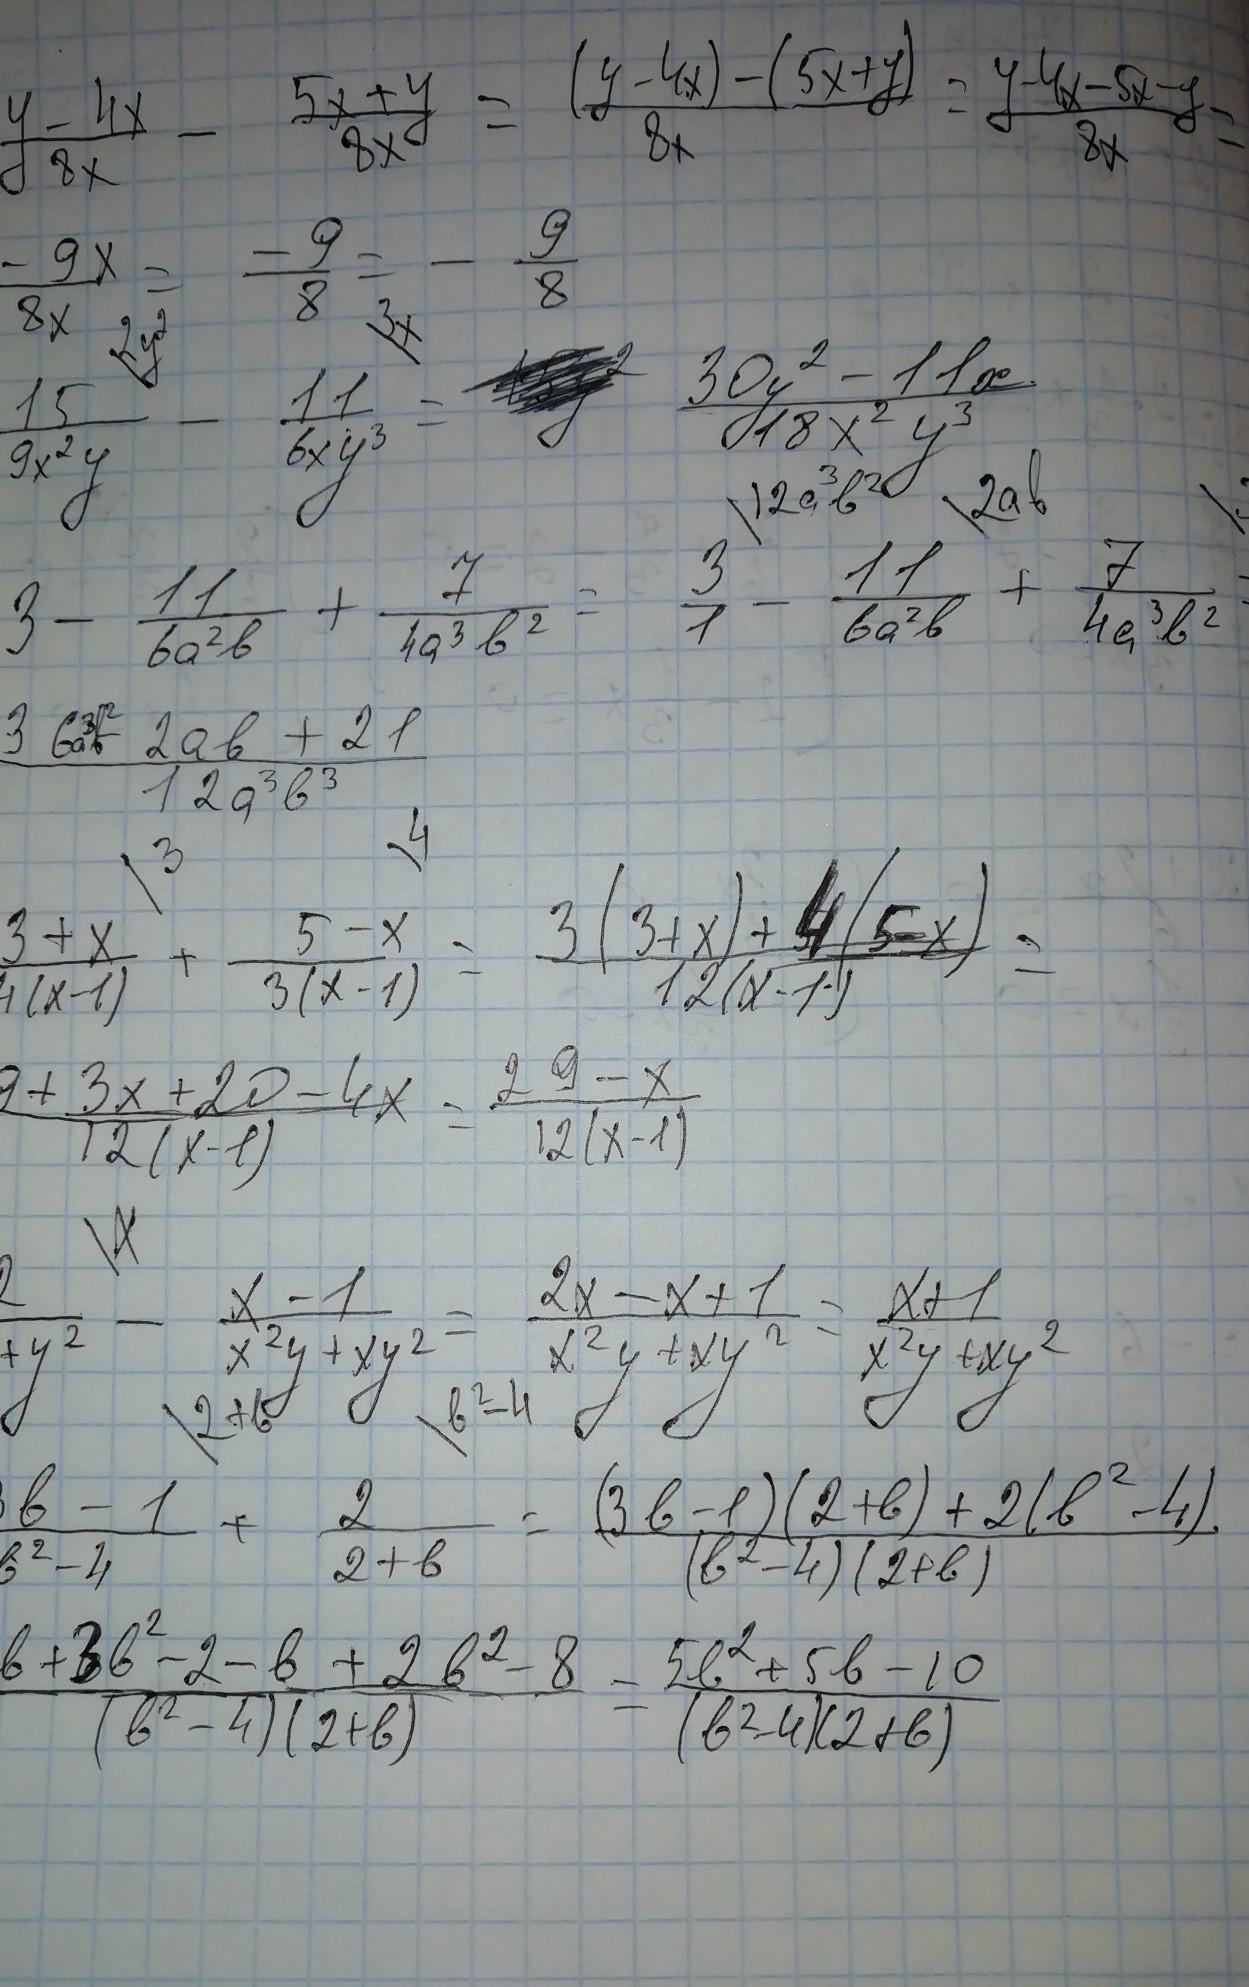 y - 4x / 8x - 5x + y / 8x = (y - 4x) - (5x + y) / 8x = y - 4x - 5x - y / 8x =
- 9x / 8x = - 9 / 8 = - 9 / 8
\2y² \3x
15 / 9x²y - 11 / 6xy³ = 30y² - 11x / 18x²y³
\12a³b² \2ab
3 - 11 / 6a²b + 7 / 4a³b² = 3 / 1 - 11 / 6a²b + 7 / 4a³b²
2ab + 21 / 12a³b³
\3 \4
3 + x / 4(x - 1) + 5 - x / 3(x - 1) = 3(3 + x) + 4(5 - x) / 12(x - 1) =
9 + 3x + 20 - 4x / 12(x - 1) = 29 - x / 12(x - 1)
\x
2 / + y² - x - 1 / x²y + xy² = 2x - x + 1 / x²y + xy² = x + 1 / x²y + xy²
\2+b \b²-4
3b - 1 / b² - 4 + 2 / 2 + b = (3b - 1)(2 + b) + 2(b² - 4) / (b² - 4)(2 + b)
b + 3b² - 2 - b + 2b² - 8 / (b² - 4)(2 + b) = 5b² + 5b - 10 / (b² - 4)(2 + b)